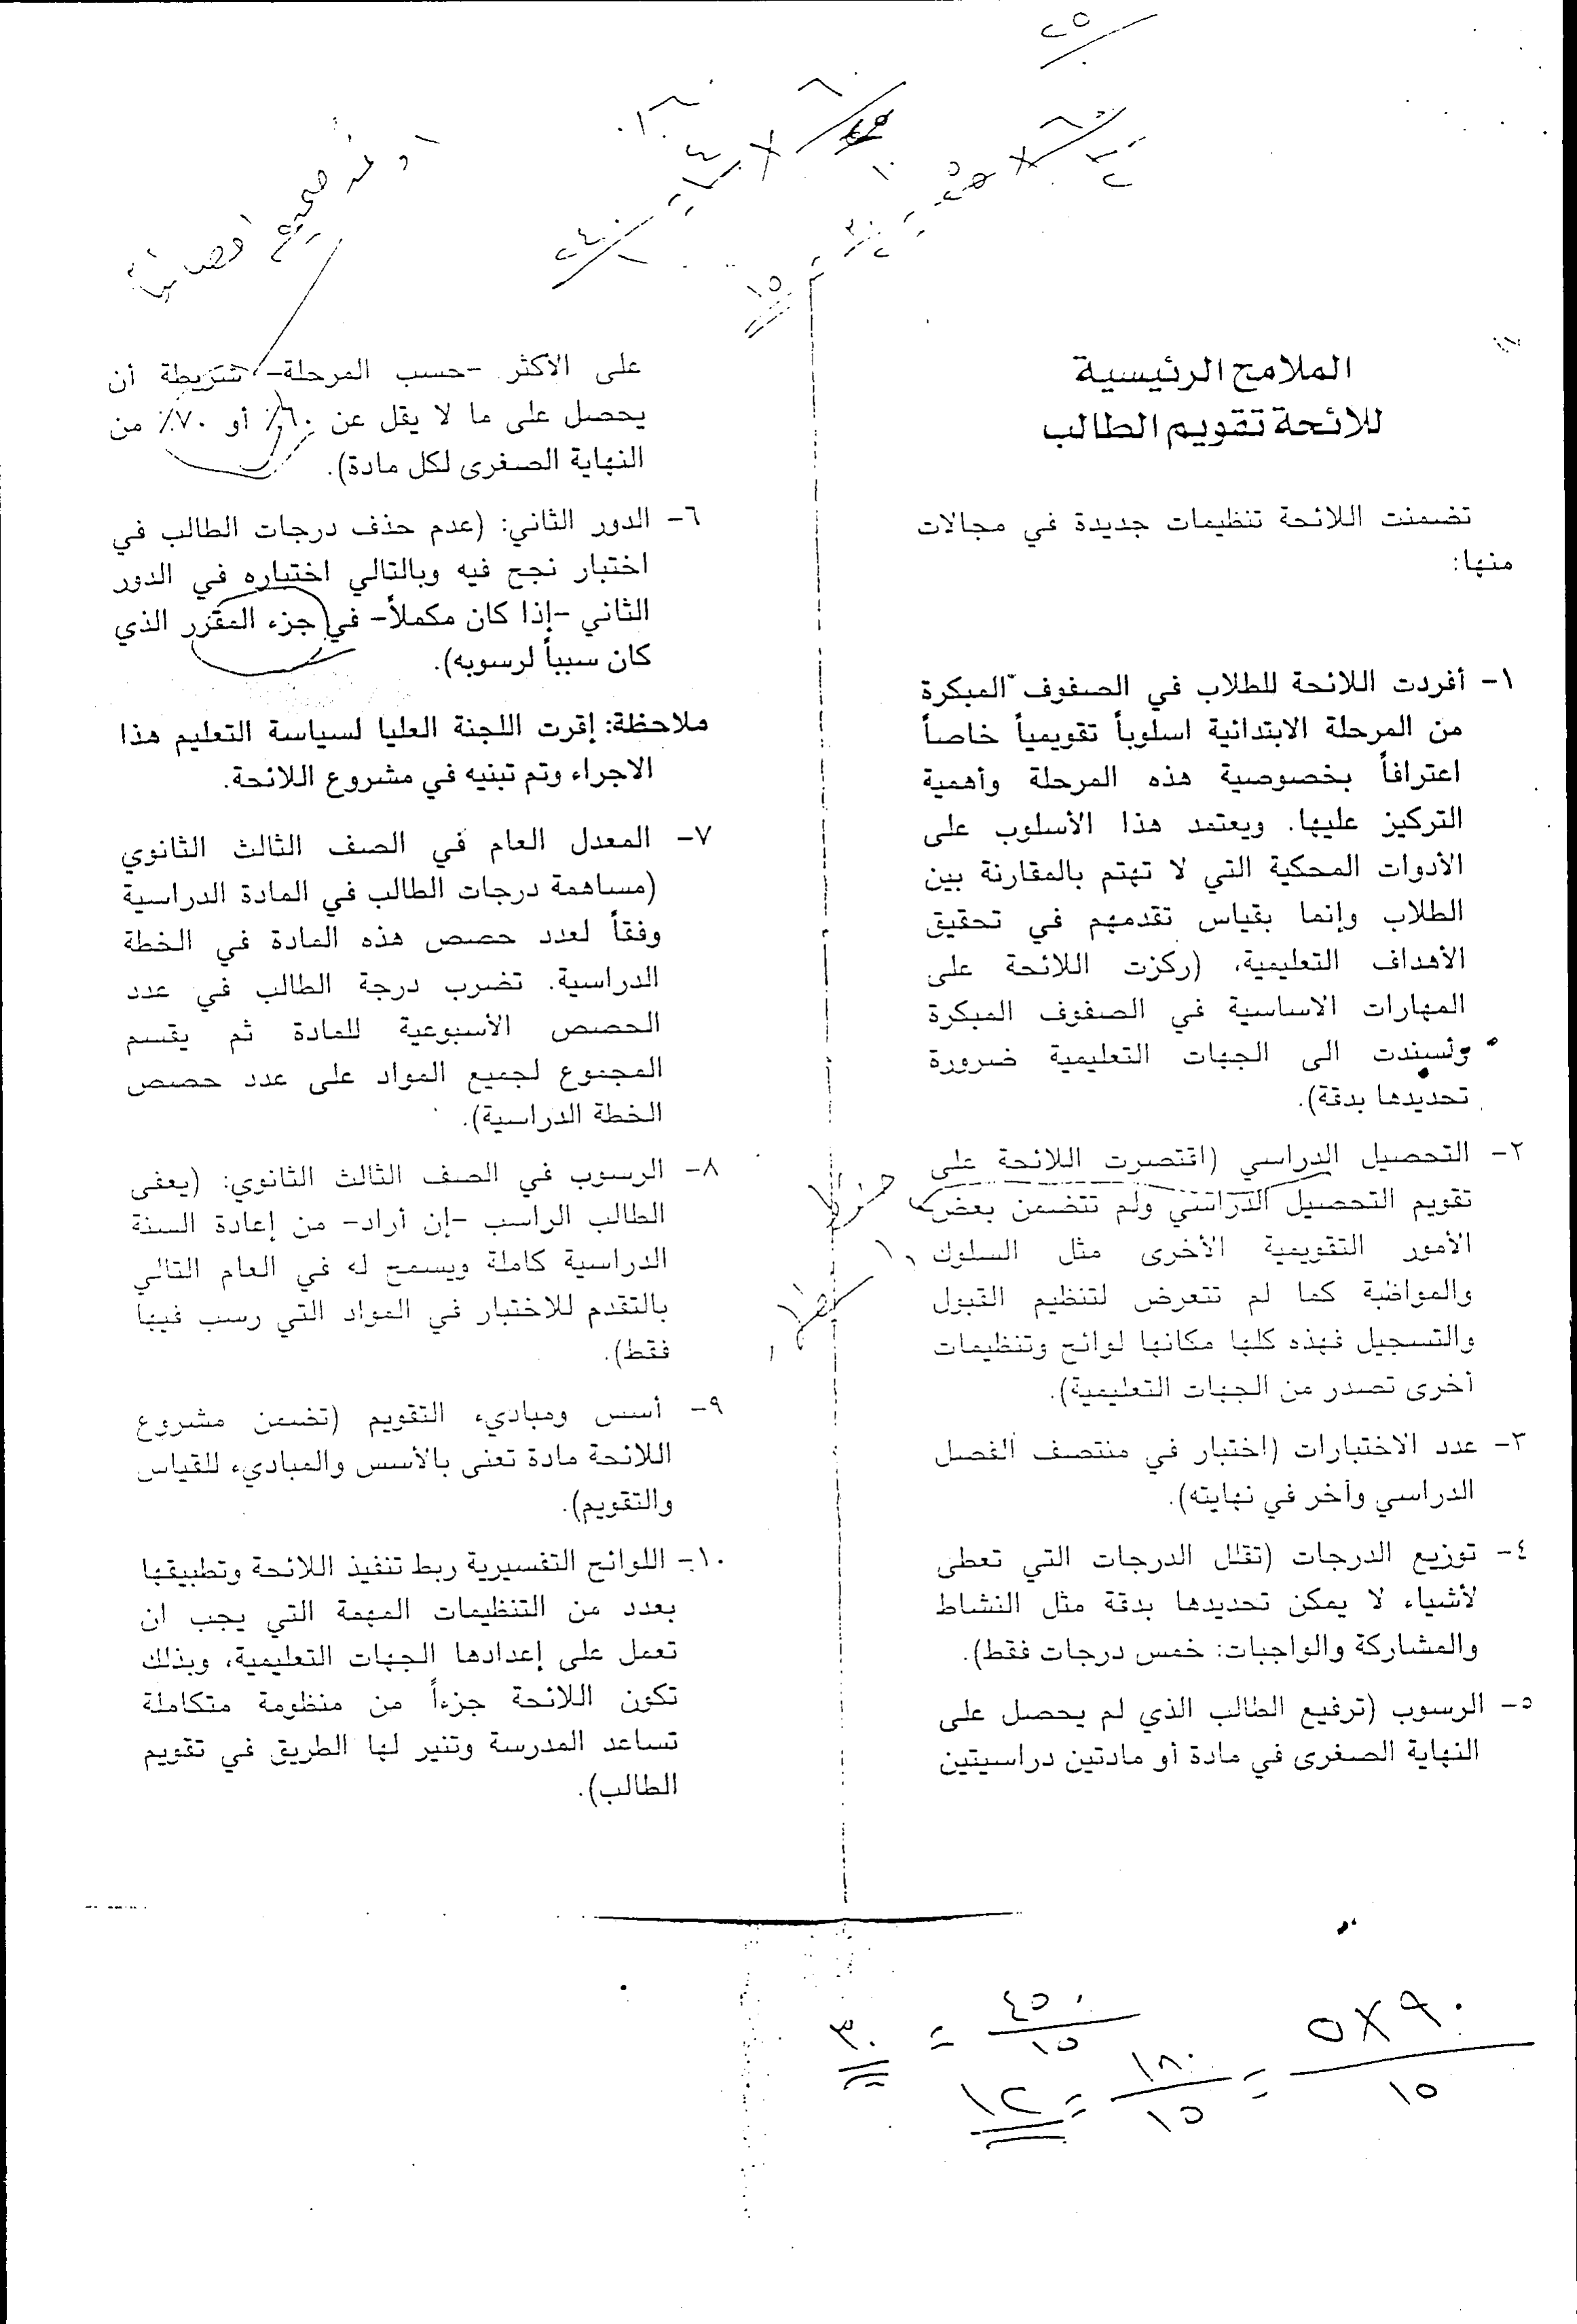 الملامح الرئيسية
للائحة تقويم الطالب
تضمنت اللائحة تنظيمات جديدة في مجالات
منها:
١- أفردت اللائحة للطلاب في الصفوف المبكرة
من المرحلة الابتدائية اسلوباً تقويمياً خاصاً
اعترافاً بخصوصية هذه المرحلة وأهمية
التركيز عليها. ويعتمد هذا الأسلوب على
الأدوات المحكية التي لا تهتم بالمقارنة بين
الطلاب وإنما بقياس تقدمهم في تحقيق
الأهداف التعليمية، (ركزت اللائحة على
المهارات الاساسية في الصفوف المبكرة
الى الجهات التعليمية ضرورة
تحديدها بدقة).
٢- التحصيل الدراسي (اقتصرت اللائحة على
تقويم التحصيل الدراسي ولم تتضمن بعض
الأمور التقويمية الأخرى مثل السلوك
والمواظبة كما لم تتعرض لتنظيم القبول
والتسجيل فهذه كلها مكانها لوائح وتنظيمات
أخرى تصدر من الجهات التعليمية).
٣- عدد الاختبارات (اختبار في منتصف الفصل
الدراسي وآخر في نهايته).
٤- توزيع الدرجات (تقلل الدرجات التي تعطى
لأشياء لا يمكن تحديدها بدقة مثل النشاط
والمشاركة والواجبات: خمس درجات فقط).
٥- الرسوب (ترفيع الطالب الذي لم يحصل على
النهاية الصغرى في مادة أو مادتين دراسيتين
على الأكثر -حسب المرحلة- شريطة أن
يحصل على ما لا يقل عن ٦٠٪ أو ٧٠٪ من
النهاية الصغرى لكل مادة).
٦- الدور الثاني: (عدم حذف درجات الطالب في
اختبار نجح فيه وبالتالي اختباره في الدور
الثاني -إذا كان مكملاً- في جزء المقرر الذي
كان سبباً لرسوبه).
ملاحظة: إقرت اللجنة العليا لسياسة التعليم هذا
الاجراء وتم تبنيه في مشروع اللائحة.
٧- المعدل العام في الصف الثالث الثانوي
(مساهمة درجات الطالب في المادة الدراسية
وفقاً لعدد حصص هذه المادة في الخطة
الدراسية. تضرب درجة الطالب في عدد
الحصص الأسبوعية للمادة ثم يقسم
المجموع لجميع المواد على عدد حصص
الخطة الدراسية).
٨- الرسوب في الصف الثالث الثانوي: (يعفى
الطالب الراسب -إن أراد- من إعادة السنة
الدراسية كاملة ويسمح له في العام التالي
بالتقدم للاختبار في المواد التي رسب فيها
فقط).
٩- أسس ومباديء التقويم (تضمن مشروع
اللائحة مادة تعنى بالأسس والمباديء للقياس
والتقويم).
١٠- اللوائح التفسيرية ربط تنفيذ اللائحة وتطبيقها
بعدد من التنظيمات المهمة التي يجب ان
تعمل على إعدادها الجهات التعليمية، وبذلك
تكون اللائحة جزءاً من منظومة متكاملة
تساعد المدرسة وتنير لها الطريق في تقويم
الطالب).
٥×٩٠
١٥
=
١٨٠
١٥
= ١٢
٤٥٠
١٥
= ٣٠